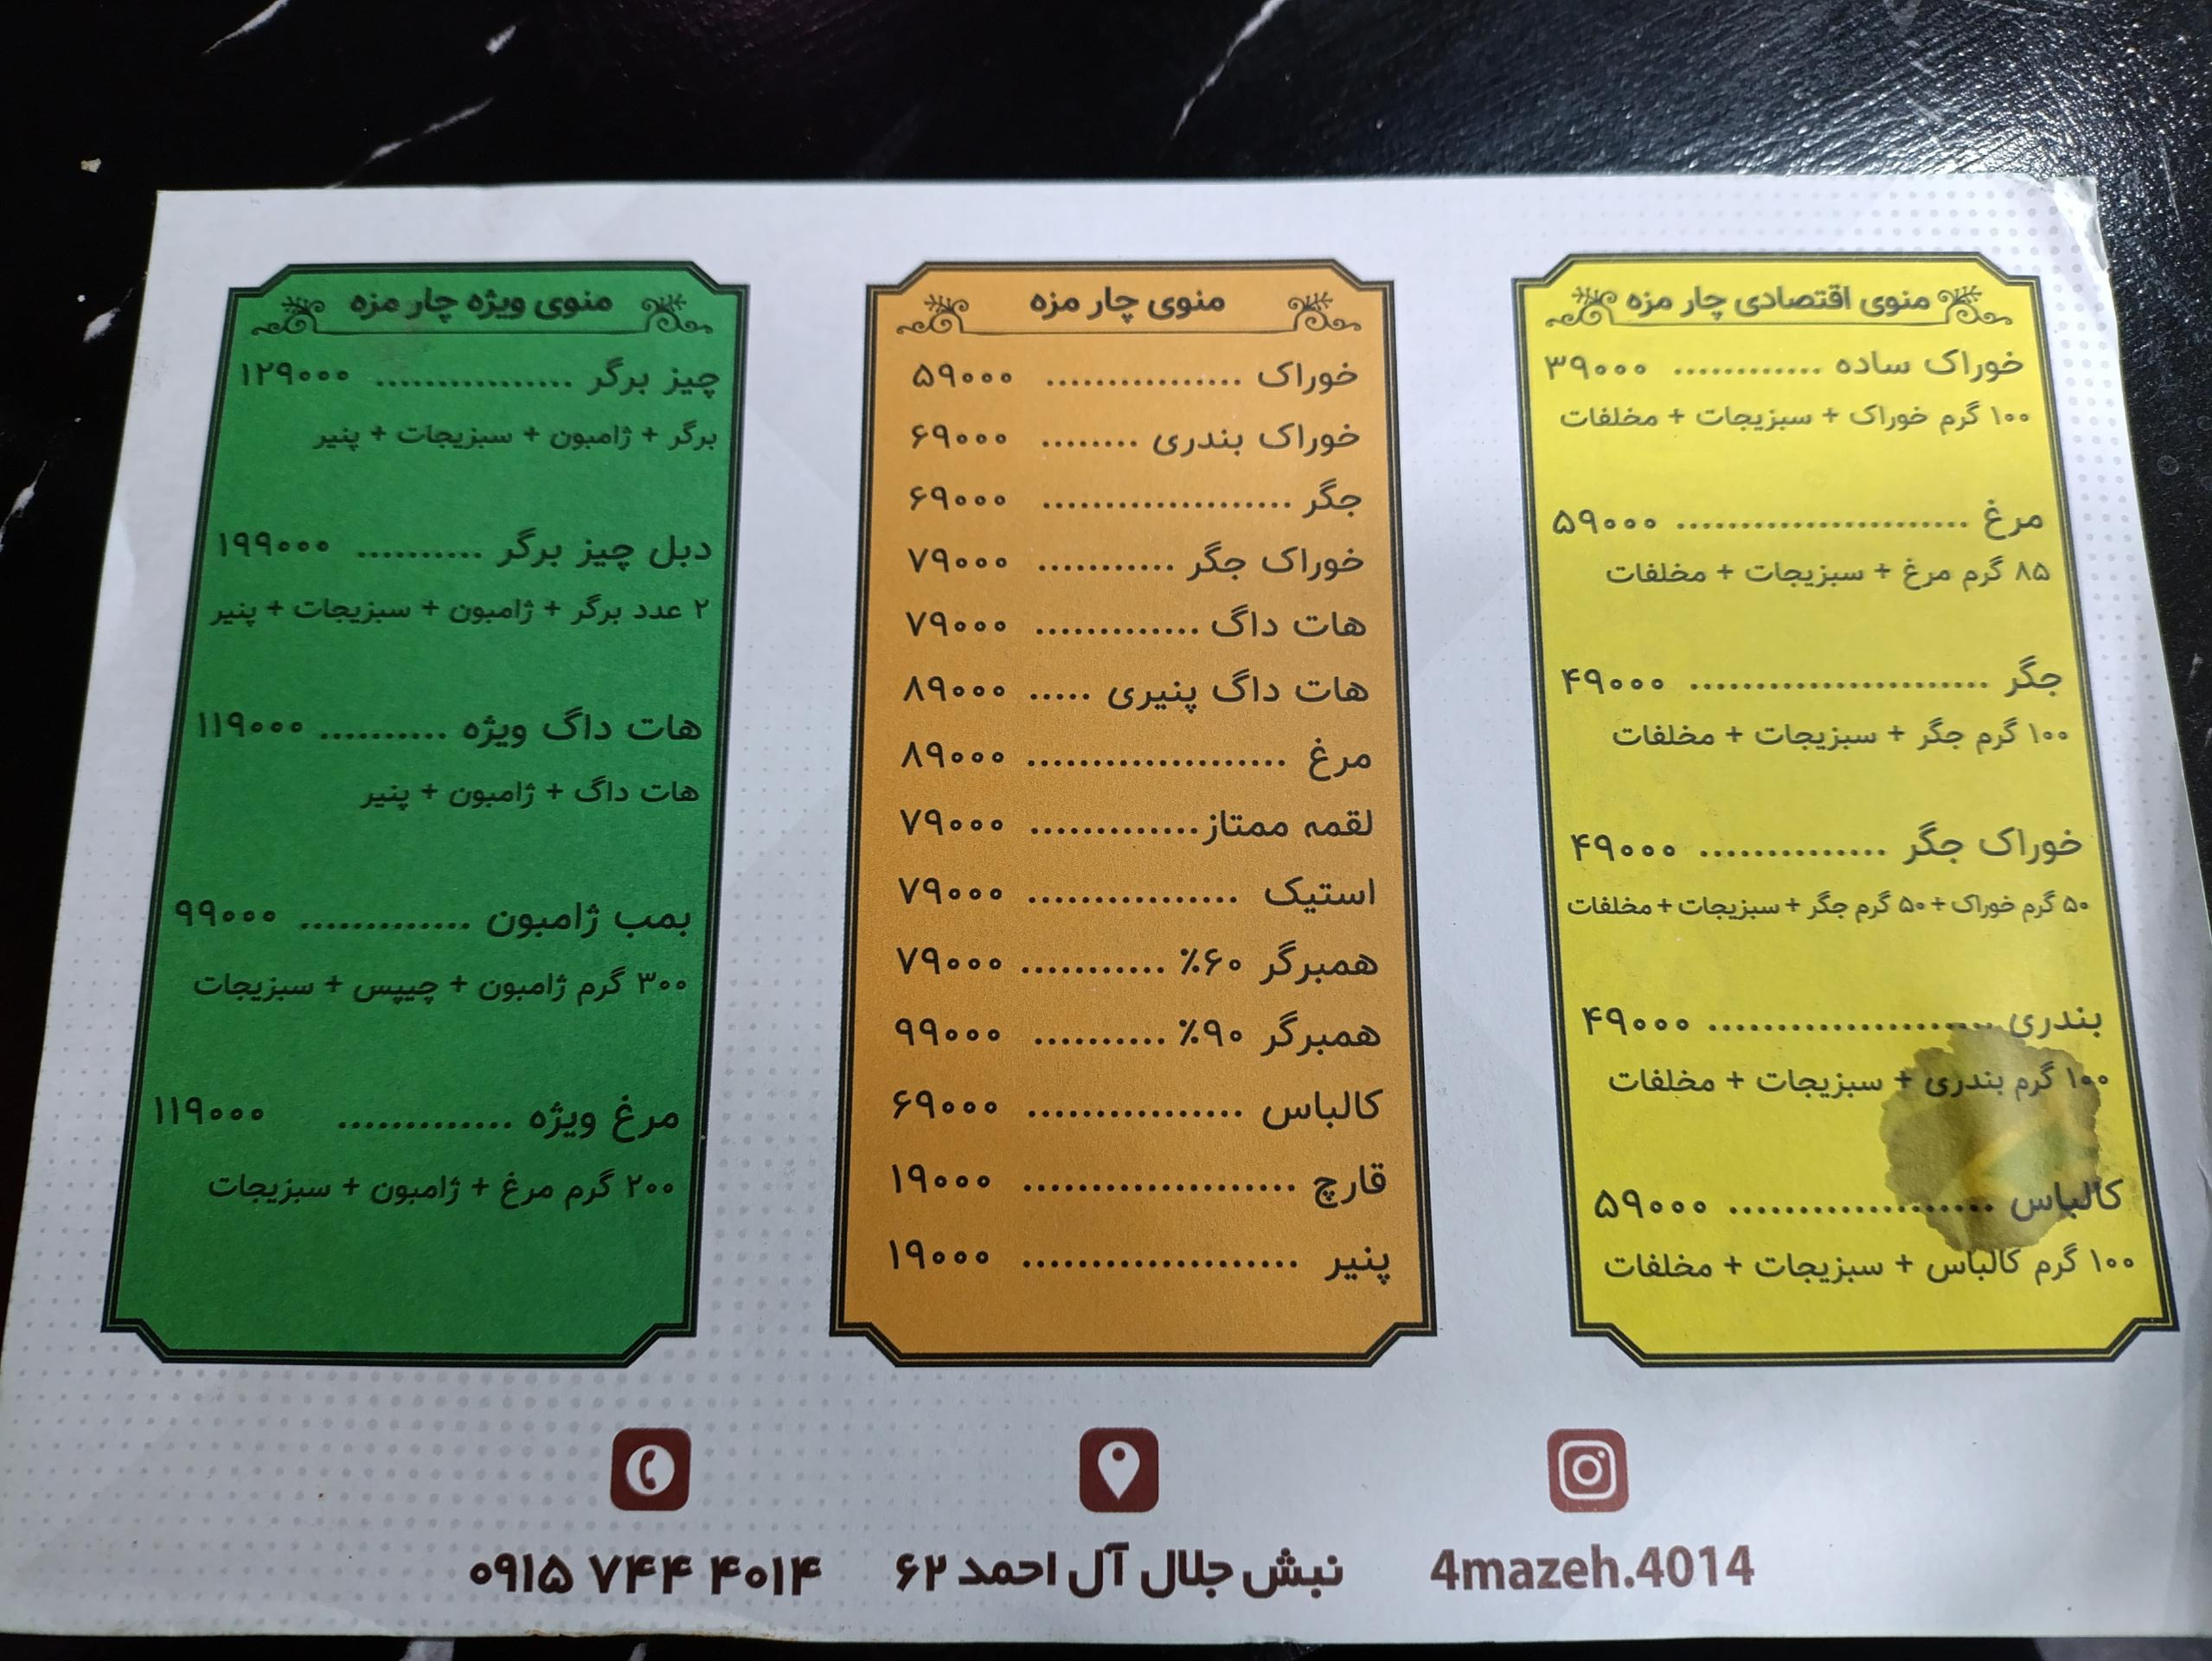 منوی اقتصادی چار مزه
خوراک ساده ............ ۳۹۰۰۰
۱۰۰ گرم خوراک + سبزیجات + مخلفات
مرغ ....................... ۵۹۰۰۰
۸۵ گرم مرغ + سبزیجات + مخلفات
جگر ....................... ۴۹۰۰۰
۱۰۰ گرم جگر + سبزیجات + مخلفات
خوراک جگر .............. ۴۹۰۰۰
۵۰ گرم خوراک + ۵۰ گرم جگر + سبزیجات + مخلفات
بندری ...................... ۴۹۰۰۰
۱۰۰ گرم بندری + سبزیجات + مخلفات
کالباس .................... ۵۹۰۰۰
۱۰۰ گرم کالباس + سبزیجات + مخلفات
منوی چار مزه
خوراک ................ ۵۹۰۰۰
خوراک بندری ........ ۶۹۰۰۰
جگر ................... ۶۹۰۰۰
خوراک جگر ........... ۷۹۰۰۰
هات داگ ............. ۷۹۰۰۰
هات داگ پنیری ..... ۸۹۰۰۰
مرغ .................... ۸۹۰۰۰
لقمه ممتاز ............. ۷۹۰۰۰
استیک ................ ۷۹۰۰۰
همبرگر ۶۰٪ ........... ۷۹۰۰۰
همبرگر ۹۰٪ .......... ۹۹۰۰۰
کالباس ................ ۶۹۰۰۰
قارچ ..................... ۱۹۰۰۰
پنیر ..................... ۱۹۰۰۰
منوی ویژه چار مزه
چیز برگر ................ ۱۲۹۰۰۰
برگر + ژامبون + سبزیجات + پنیر
دبل چیز برگر .......... ۱۹۹۰۰۰
۲ عدد برگر + ژامبون + سبزیجات + پنیر
هات داگ ویژه .......... ۱۱۹۰۰۰
هات داگ + ژامبون + پنیر
بمب ژامبون ............. ۹۹۰۰۰
۳۰۰ گرم ژامبون + چیپس + سبزیجات
مرغ ویژه ............. ۱۱۹۰۰۰
۲۰۰ گرم مرغ + ژامبون + سبزیجات
4mazeh.4014
نبش جلال آل احمد ۶۲
۰۹۱۵ ۷۴۴ ۴۰۱۴